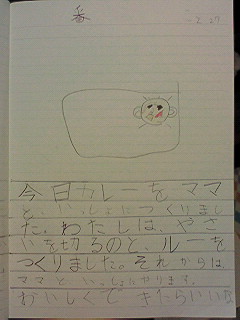 番
今日カレーをママ
と、いっしょにつくりまし
た。わたしは、やさ
いを切るのと、ルーを
つくりました。それからは、
ママといっしょにやります。
おいしくできたらいいな